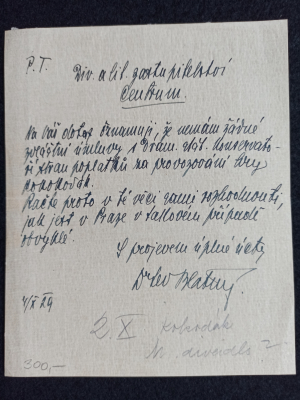 P. T.
Div. a lit. zastupitelství
Centrum.
Na Váš dotaz oznamuji, že nemám žádné
zvláštní úmluvy s dram. odb. Konservato-
ře stran poplatků na provozování hry
Kokokodák.
Račte proto v té věci sami rozhodnouti,
jak jest v Praze v takovém případě
obvyklé.
S projevem úplné úcty
Dr Lev Blatný
4/X 29
2 X Kokodák
N. divadelo ?
300,—